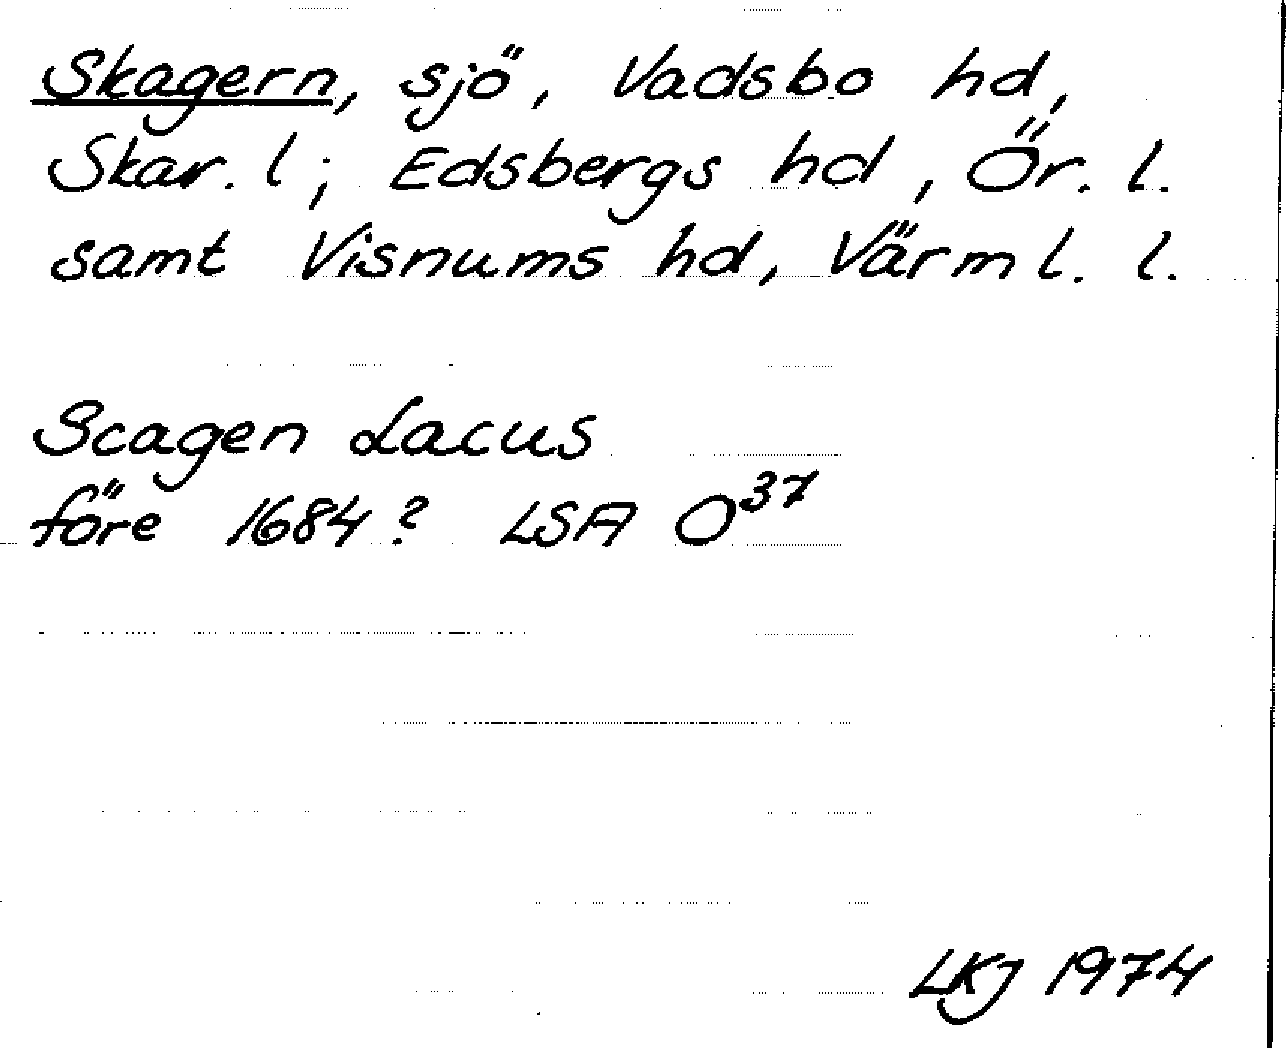 Skagern, sjö, Vadsbo hd,
Skar. l; Edsbergs hd, Ör. l.
samt Visnums hd, Värml. l.
Scagen Lacus
före 1684? LSA O³⁷
LKJ 1974